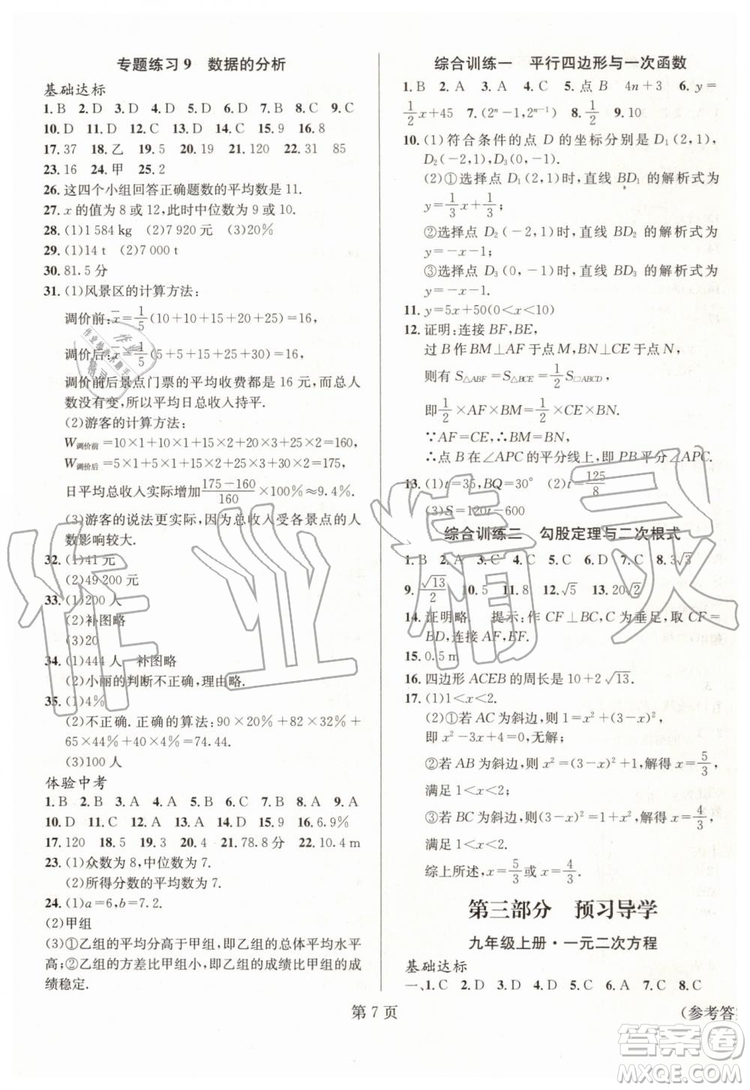 专题练习9 数据的分析
基础达标
1. B 2. D 3. D 4. B 5. D 6. B 7. B 8. C 9. C
10. D 11. D 12. D 13. A 14. D 15. 9 16. 8
17. 37 18. 乙 19. 5 20. 2.5 21. 31 22. 85
23. 16 24. 甲 25. 2
26. 这四个小组回答正确题数的平均数是11.
27. x的值为8或12,此时中位数为9或10.
28. (1)1 584 kg (2)7 920元 (3)20%
29. (1)14 t (2)7 000 t
30. 81.5分
31. (1)风景区的计算方法:
调价前:x̄=1/5(10+10+15+20+25)=16,
调价后:x̄=1/5(5+5+15+25+30)=16,
调价前后景点门票的平均收费都是16元,而且总人
数没变,因此平均日总收入持平.
(2)游客的计算方法:
W调价前=10×1+10×1+15×2+20×3+25×2=160,
W调价后=5×1+5×1+15×2+25×3+30×2=175,
日平均总收入实际增加(175-160)/160×100%≈9.4%.
(3)游客的说法更实际,因为它与各景点的人数
影响较大.
32. (1)41元
(2)49 200元
33. (1)200人
(2)补图略
(3)20
34. (1)444人 补图略
(2)小丽的判断不正确,理由略.
35. (1)4%
(2)不正确.正确的算法:90×20%+82×32%+
65×44%+40×4%
(3)100人
体验中考
1. B 2. A 3. B 4. C 5. D 6. C 7. D 8. C 9. D
10. D 11. A 12. B 13. C 14. 8 15. 9 16. 6.9%
17. 120 18. 5 19. 2 20. 乙 21. 88分 22. 10.4 m
23. (1)众数为7,中位数为7.
(2)所得分数的平均数为7.
24. (1)a=6,b=7.2.
(2)甲组
(3)①乙组的平均分高于甲组,即乙组的总体平均水平
高;②乙组的方差比甲组小,即乙组的成绩比甲组的成
绩稳定.
综合训练一 平行四边形与一次函数
1. B 2. A 3. C 4. C 5. 点B 4n-3 6. y=
1/2x+45 7. (2ⁿ-1,2ⁿ⁻¹) 8. 1/2 9. 10
10. (1)符合条件的点D的坐标分别是D₁(2,1),
D₂(-2,1),D₃(0,-1).
(2)①选择点D₁(2,1)时,直线BD₁的解析式为
y=1/3x+1/3;
②选择点D₂(-2,1)时,直线BD₂的解析式为
y=-x-1;
③选择点D₃(0,-1)时,直线BD₃的解析式为
y=-x-1.
11. y=5x+50(0<x<10)
12. 证明:连接BF,BE,
过B作BM⊥AF于M,作BN⊥EC于N,
则有S△ABF=S△BCE=1/2S□ABCD,
即1/2×AF×BM=1/2×CE×BN.
∵AF=CE,∴BM=BN.
∴点B在∠APC的平分线上,即PB平分∠APC.
13. (1)t=35,BQ=30° (2)t=125/8
(3)S=120t-600
综合训练二 勾股定理与二次根式
1. C 2. B 3. A 4. C 5. C 6. D 7. B 8. 3√3
9. √13/2 10. 4 11. 4 12. √5 13. 20√2
14. 证明略 提示:作CF⊥BC,C为垂足,取CF=
CD,连接AF,EF.
15. 0.5 m
16. 四边形ACEB的周长是10+2√13.
17. (1)1<x<2.
(2)①若AC为斜边,则1=x²+(3-x)²,
即x²-3x+4=0,无解;
②若AB为斜边,则x²=(3-x)²+1,解得x=5/3,
满足1<x<2;
③若BC为斜边,则(3-x)²=1+x²,解得x=4/3,
满足1<x<2.
综上所述,x=5/3或x=4/3.
第三部分 预习导学
九年级上册·一元二次方程
基础达标
一、1. C 2. D 3. D 4. A 5. B 6. D 7. C 8. C
第7页
(参考答
作业精灵
答案圈
MXQE.COM